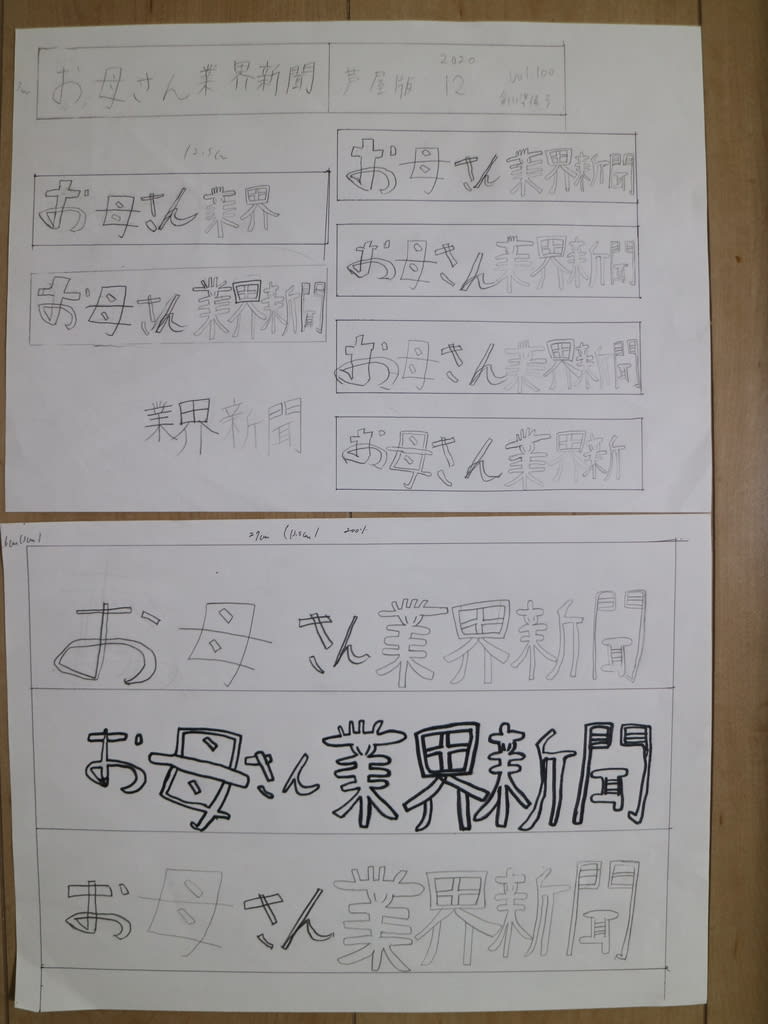 お母さん業界新聞 芦屋版 2020 12 vol.100
12.5cm
お母さん業界
お母さん業界新聞
業界新聞
お母さん業界新聞
お母さん業界新聞
お母さん業界新聞
お母さん業界新
27cm (12.5cm) 200%
お母さん業界新聞
お母さん業界新聞
お母さん業界新聞